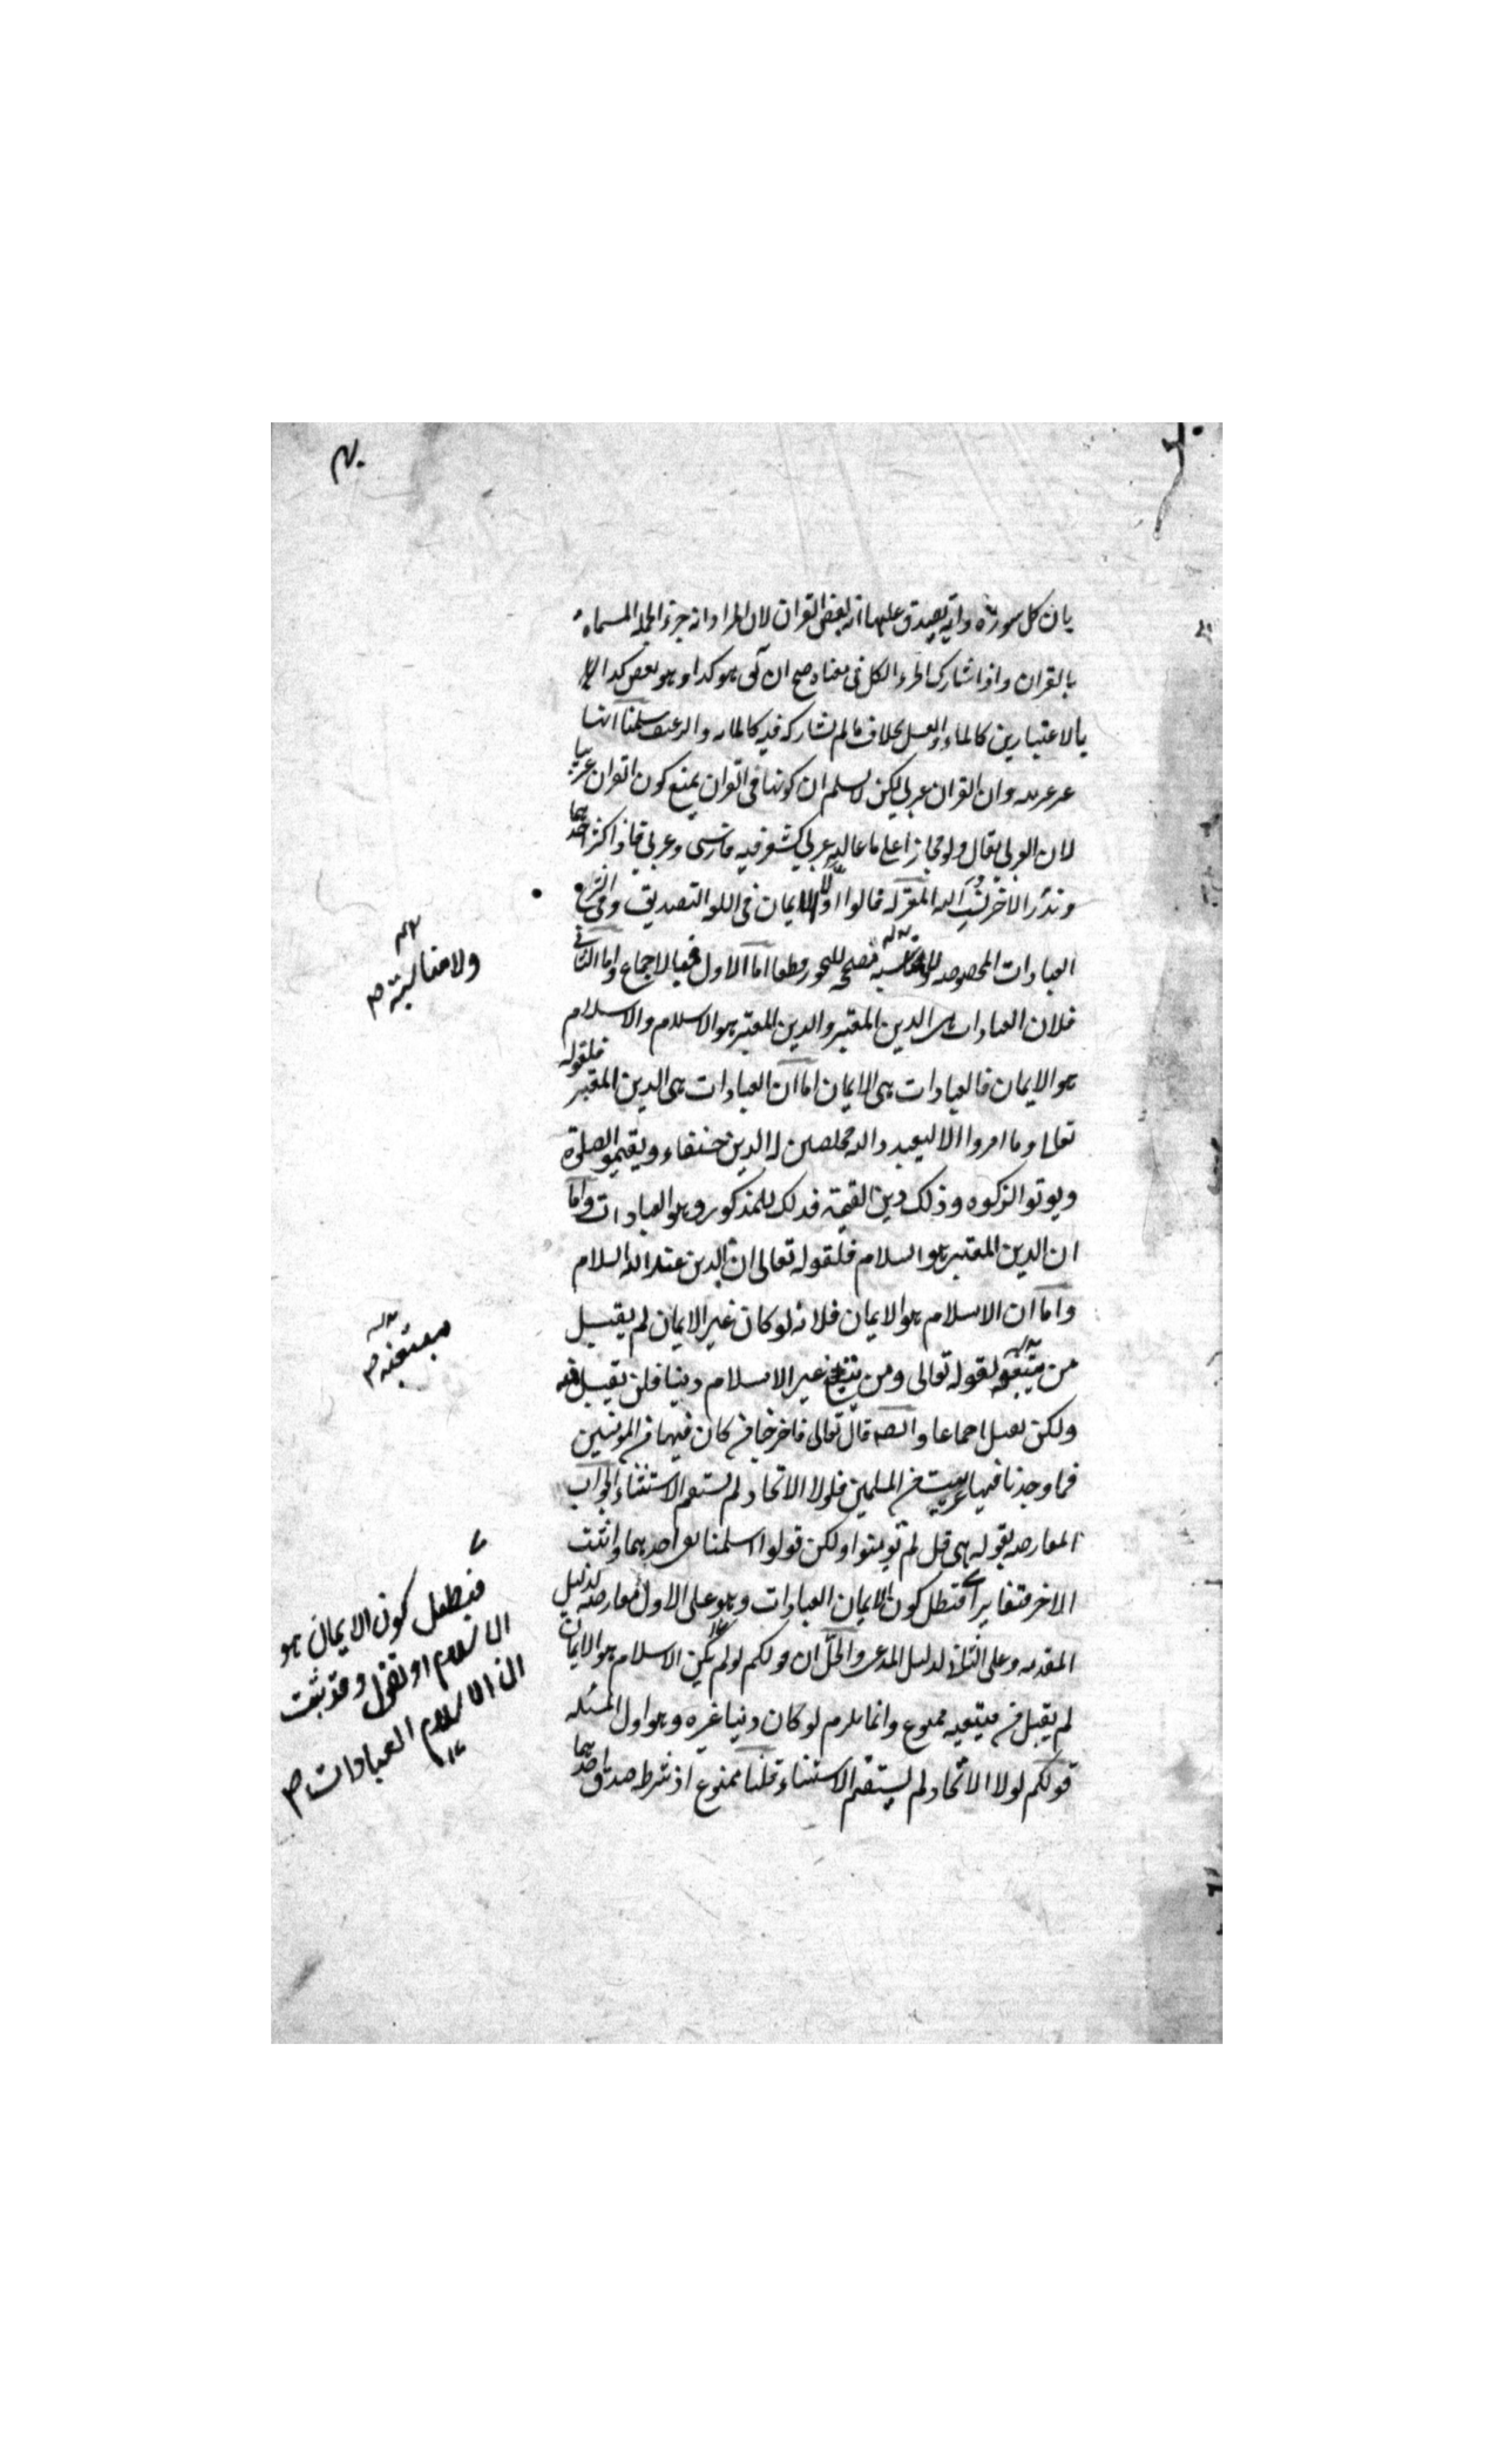 بان كل سورة واية يصدق عليها انه بعض القران لان المراد انه جزء الجملة المسماة
بالقران واذا شارك الجزء الكل فى معناه صح ان يق هو كذا وهو بعض كذا
بالاعتبارين كالماء والعسل بخلاف ما لم يشاركه فيه كالمائه والرغيف سلمنا انها
غير عربيه وان القران عربى لكن لا نسلم ان كونها فى القران يمنع كون القران عربيا
لان العربى يقال ولو مجازا على ما غالبه عربى كشعر فيه فارسى وعربى فاذا كثر احدهما
وندر الاخر نسب اليه المعتزله قالوا اولا الايمان فى اللغه التصديق وفى الشرع
العبادات المخصوصه ولا مناسبه مصححه للتجوز قطعا اما الاول فبالاجماع واما الثانى
فلان العبادات هى الدين المعتبر والدين المعتبر هو الاسلام والاسلام
هو الايمان فالعبادات هى الايمان اما ان العبادات هى الدين المعتبر فلقوله
تعالى وما امروا الا ليعبدوا الله مخلصين له الدين حنفاء ويقيموا الصلوة
ويوتوا الزكوه وذلك دين القيمة فذلك للمذكور وهو العبادات واما
ان الدين المعتبر هو السلام فلقوله تعالى ان الدين عند الله السلام
واما ان الاسلام هو الايمان فلانه لو كان غير الايمان لم يقبل
من مبتغيه لقوله تعالى ومن يبتغ غير الاسلام دينا فلن يقبل منه
ولكن يقبل اجماعا وايضه قال تعالى فاخرجنا من كان فيها من المؤمنين
فما وجدنا فيها غير بيت من المسلمين فلولا الاتحاد لم يستقم الاستثناء الجواب
المعارضه بقوله تعالى قل لم تؤمنوا ولكن قولوا اسلمنا نفى احدهما واثبت
الاخر فتغايرا فبطل كون الايمان العبادات وهو على الاول معارضه لدليل
المقدمه وعلى الثانى لدليل المدعى والحل ان قولكم لو لم يكن الاسلام هو الايمان
لم يقبل من مبتغيه ممنوع وانما يلزم لو كان دينا غيره وهو اول المسئله
قولكم لولا الاتحاد لم يستقم الاستثناء قلنا ممنوع اذ شرطه صدق احدهما
ولا مناسبة ص
مبتغيه ص
فبطل كون الايمان هو
الاسلام او نقول وقد ثبت
ان الاسلام العبادات ص